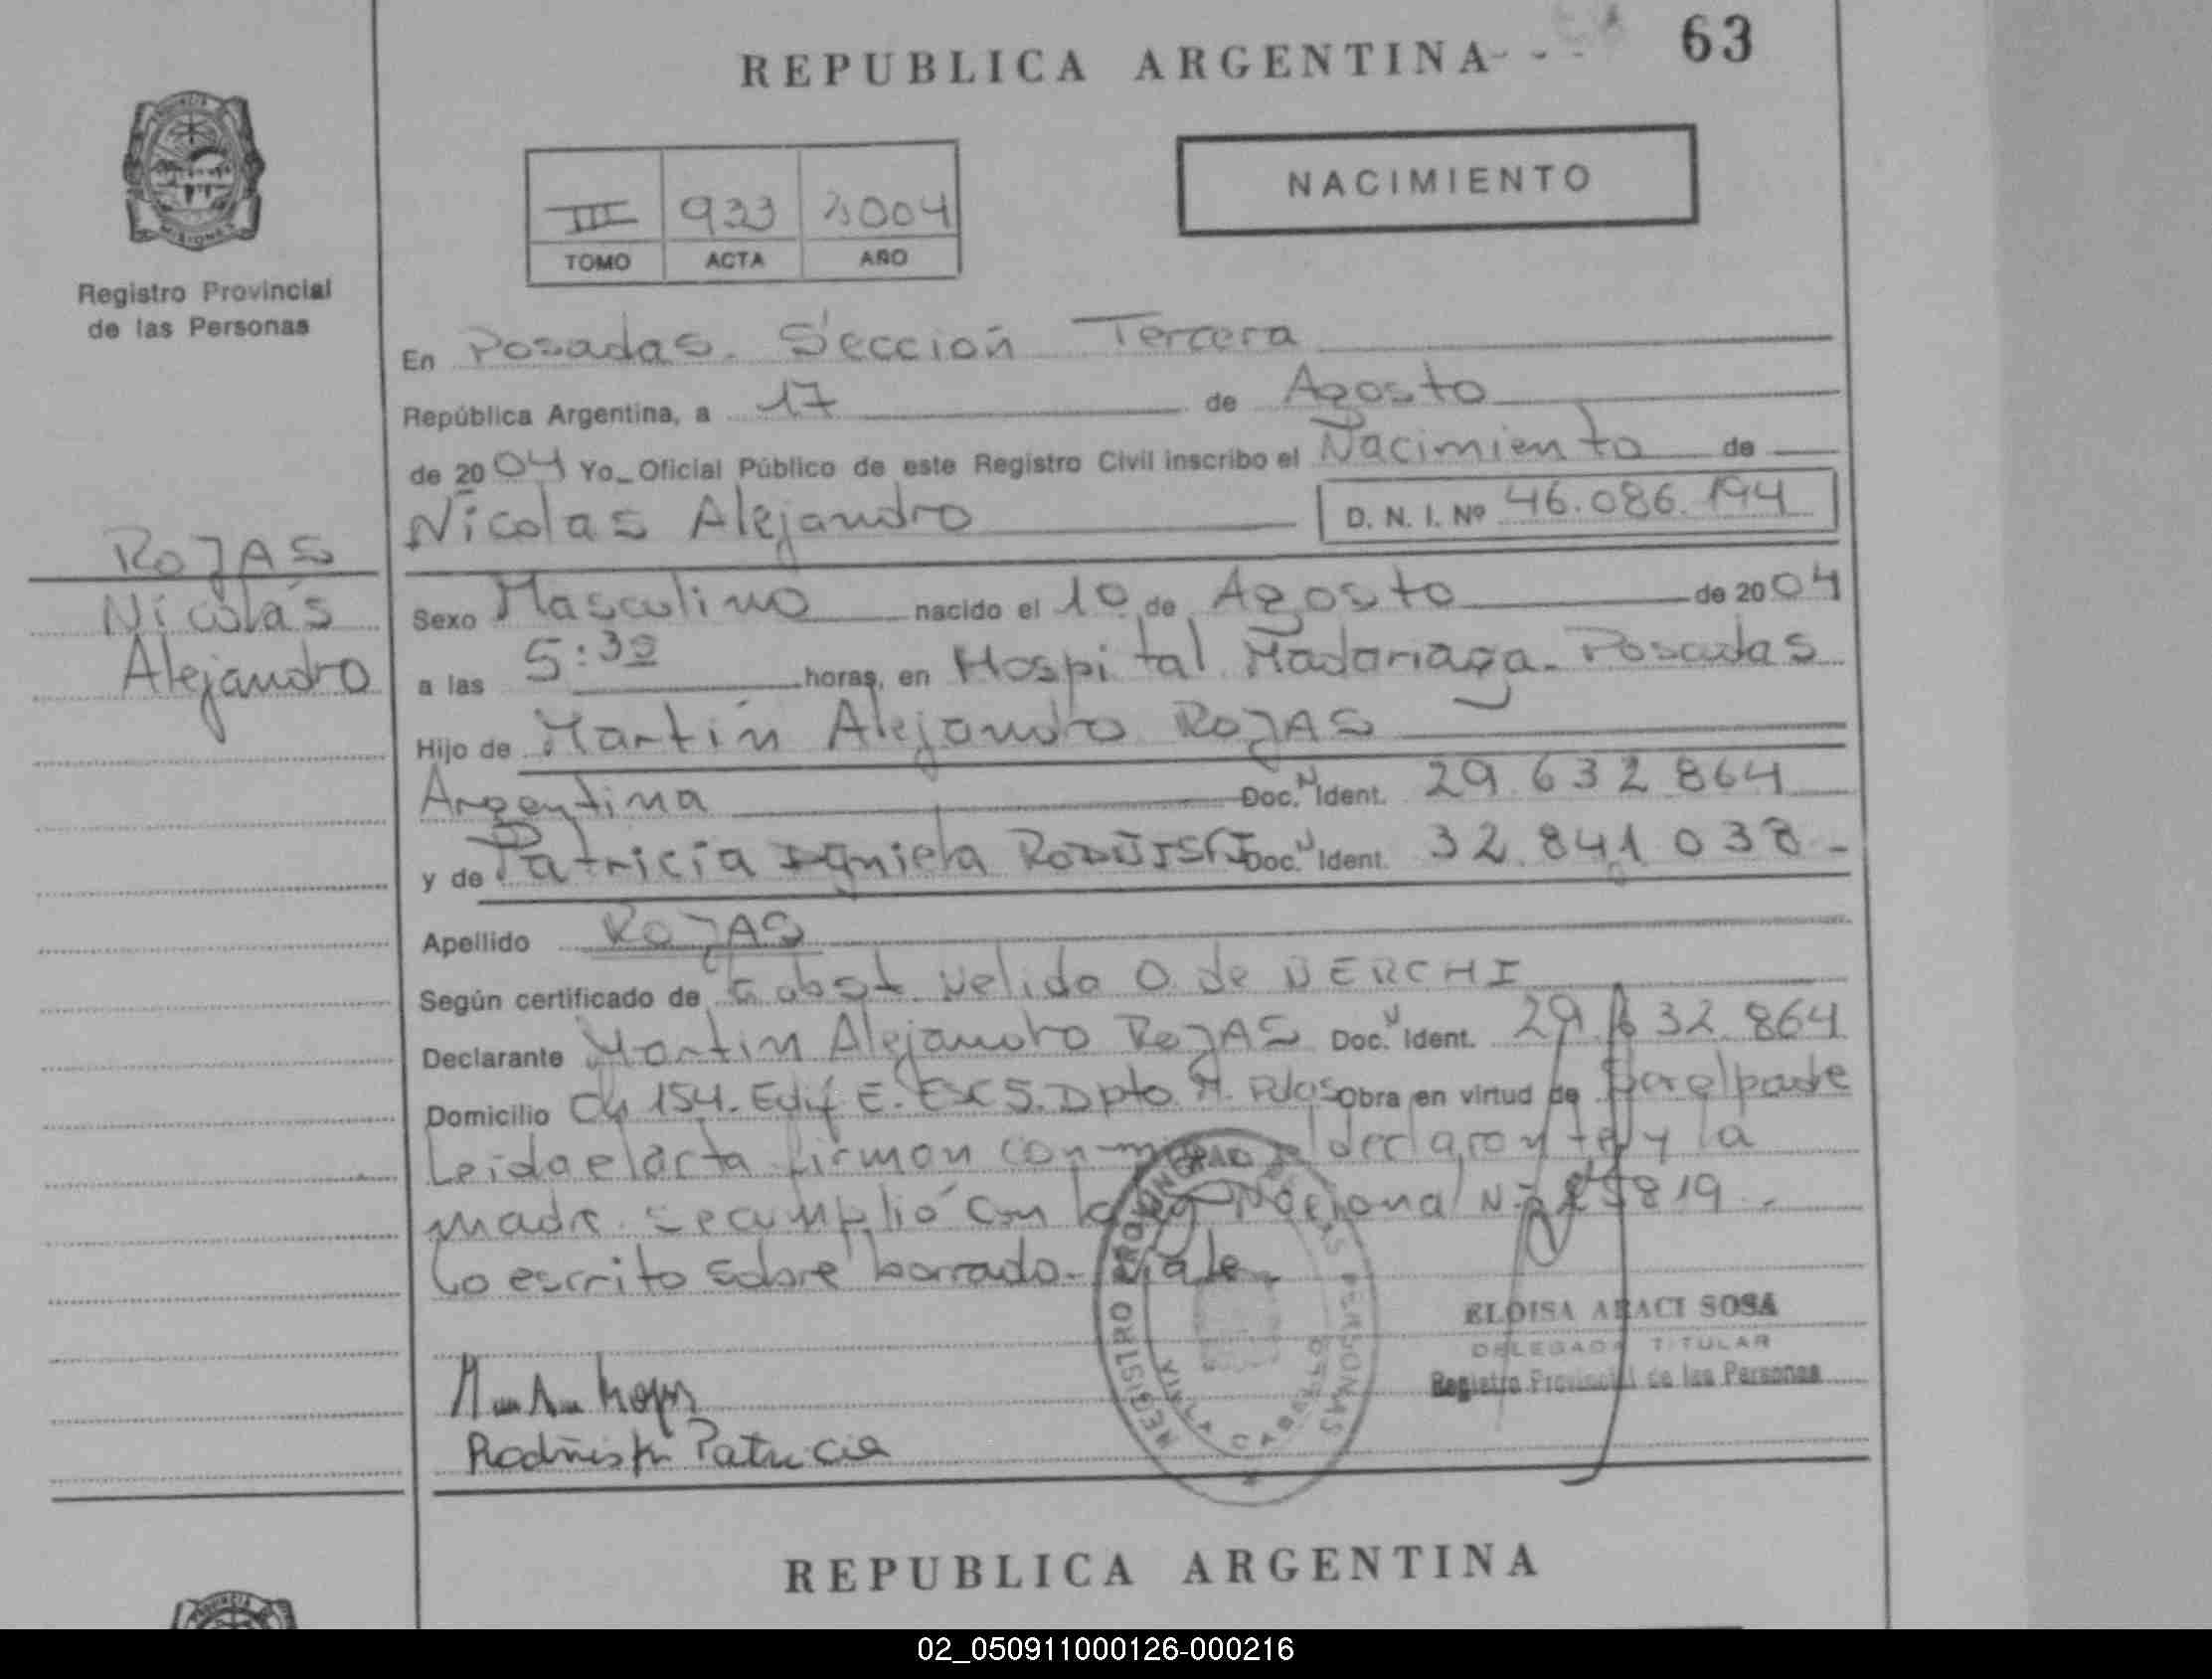 REPUBLICA ARGENTINA - - -
63
PROVINCIA
MISIONES
Registro Provincial
de las Personas
NACIMIENTO
III 933 2004
TOMO ACTA AÑO
En Posadas. Sección Tercera
República Argentina, a 17 de Agosto
de 2004 Yo_ Oficial Público de este Registro Civil inscribo el Nacimiento de
Nicolas Alejandro D. N. I. Nº 46.086.194
ROJAS
Nicolás
Alejandro
Sexo Masculino nacido el 10 de Agosto de 2004
a las 5:30 horas, en Hospital Madariaga. Posadas
Hijo de Martín Alejandro ROJAS
Argentina Doc. N Ident. 29.632.864
y de Patricia Doc. N Ident. 32.841.038-
Apellido ROJAS
Según certificado de obst Nelida O. de
Declarante Martin Alejandro ROJAS Doc. N Ident. 29.632.864
Domicilio Ch 154. Edif E. ESC 5. Dpto Pdas Obra en virtud de Ser el padre
Leida el acta firman conmigo el declarante y la
madre. Se cumplió con la Ley Nacional Nº 25819.
Lo escrito sobre borrado. Vale.
REGISTRO PROVINCIAL DE LAS PERSONAS
VILLA CABELLO
ELOISA ARACI SOSA
DELEGADA TITULAR
Registro Provincial de las Personas
Patricia
REPUBLICA ARGENTINA
02_050911000126-000216